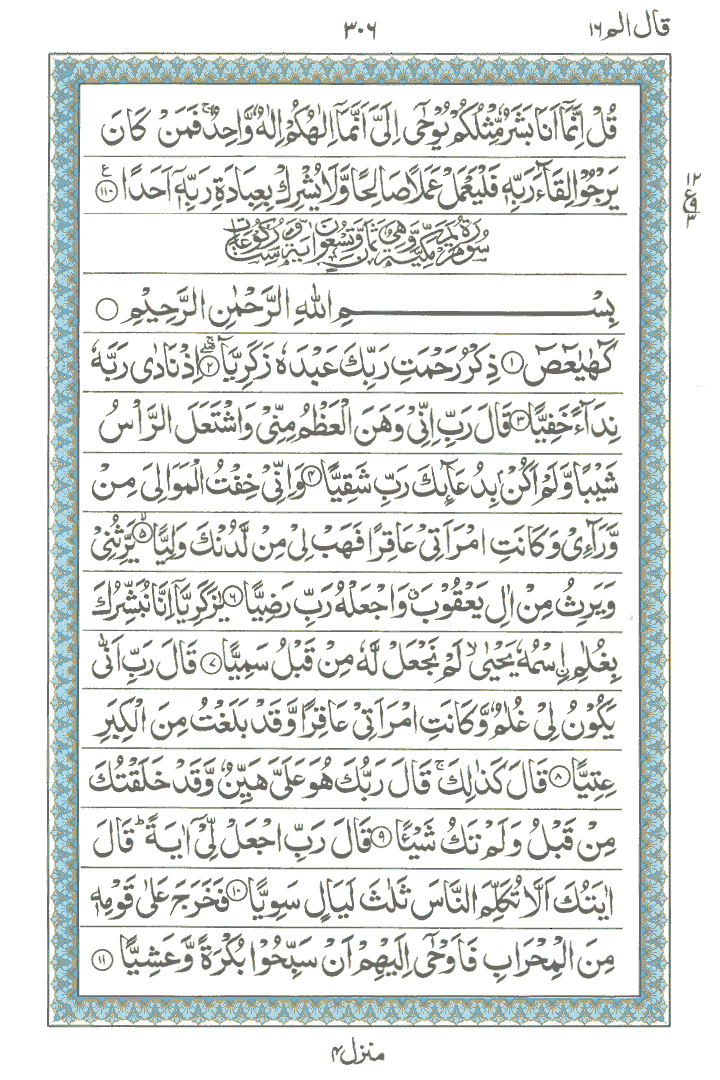 قال الم ١٦
٣٠٦
قُلْ اِنَّمَاۤ اَنَا بَشَرٌ مِّثْلُكُمْ یُوْحٰۤی اِلَیَّ اَنَّمَاۤ اِلٰهُكُمْ اِلٰهٌ وَّاحِدٌ ۚ فَمَنْ كَانَ
یَرْجُوْا لِقَآءَ رَبِّهٖ فَلْیَعْمَلْ عَمَلًا صَالِحًا وَّلَا یُشْرِكْ بِعِبَادَةِ رَبِّهٖۤ اَحَدًا ۧ ١١٠
١٢
ع
٣
سُوْرَةُ مَرْیَمَ مَكِّیَّةٌ وَّهِیَ ثَمَانٌ وَّتِسْعُوْنَ اٰیَةً وَّسِتُّ رُكُوْعَاتٍ
بِسْمِ اللهِ الرَّحْمٰنِ الرَّحِیْمِ
كٓهٰیٰعٓصٓ ١ ذِكْرُ رَحْمَتِ رَبِّكَ عَبْدَهٗ زَكَرِیَّا ۖۚ ٢ اِذْ نَادٰی رَبَّهٗ
نِدَآءً خَفِیًّا ٣ قَالَ رَبِّ اِنِّیْ وَهَنَ الْعَظْمُ مِنِّیْ وَاشْتَعَلَ الرَّاْسُ
شَیْبًا وَّلَمْ اَكُنْۢ بِدُعَآىِٕكَ رَبِّ شَقِیًّا ٤ وَاِنِّیْ خِفْتُ الْمَوَالِیَ مِنْ
وَّرَآءِیْ وَكَانَتِ امْرَاَتِیْ عَاقِرًا فَهَبْ لِیْ مِنْ لَّدُنْكَ وَلِیًّا ۙ ٥ یَّرِثُنِیْ
وَیَرِثُ مِنْ اٰلِ یَعْقُوْبَ ۖ وَاجْعَلْهُ رَبِّ رَضِیًّا ٦ یٰزَكَرِیَّاۤ اِنَّا نُبَشِّرُكَ
بِغُلٰمِ ِ۟اسْمُهٗ یَحْیٰی ۙ لَمْ نَجْعَلْ لَّهٗ مِنْ قَبْلُ سَمِیًّا ٧ قَالَ رَبِّ اَنّٰی
یَكُوْنُ لِیْ غُلٰمٌ وَّكَانَتِ امْرَاَتِیْ عَاقِرًا وَّقَدْ بَلَغْتُ مِنَ الْكِبَرِ
عِتِیًّا ٨ قَالَ كَذٰلِكَ ۚ قَالَ رَبُّكَ هُوَ عَلَیَّ هَیِّنٌ وَّقَدْ خَلَقْتُكَ
مِنْ قَبْلُ وَلَمْ تَكُ شَیْـًٔا ٩ قَالَ رَبِّ اجْعَلْ لِّیْۤ اٰیَةً ؕ قَالَ
اٰیَتُكَ اَلَّا تُكَلِّمَ النَّاسَ ثَلٰثَ لَیَالٍ سَوِیًّا ١٠ فَخَرَجَ عَلٰی قَوْمِهٖ
مِنَ الْمِحْرَابِ فَاَوْحٰۤی اِلَیْهِمْ اَنْ سَبِّحُوْا بُكْرَةً وَّعَشِیًّا ١١
منزل ٤